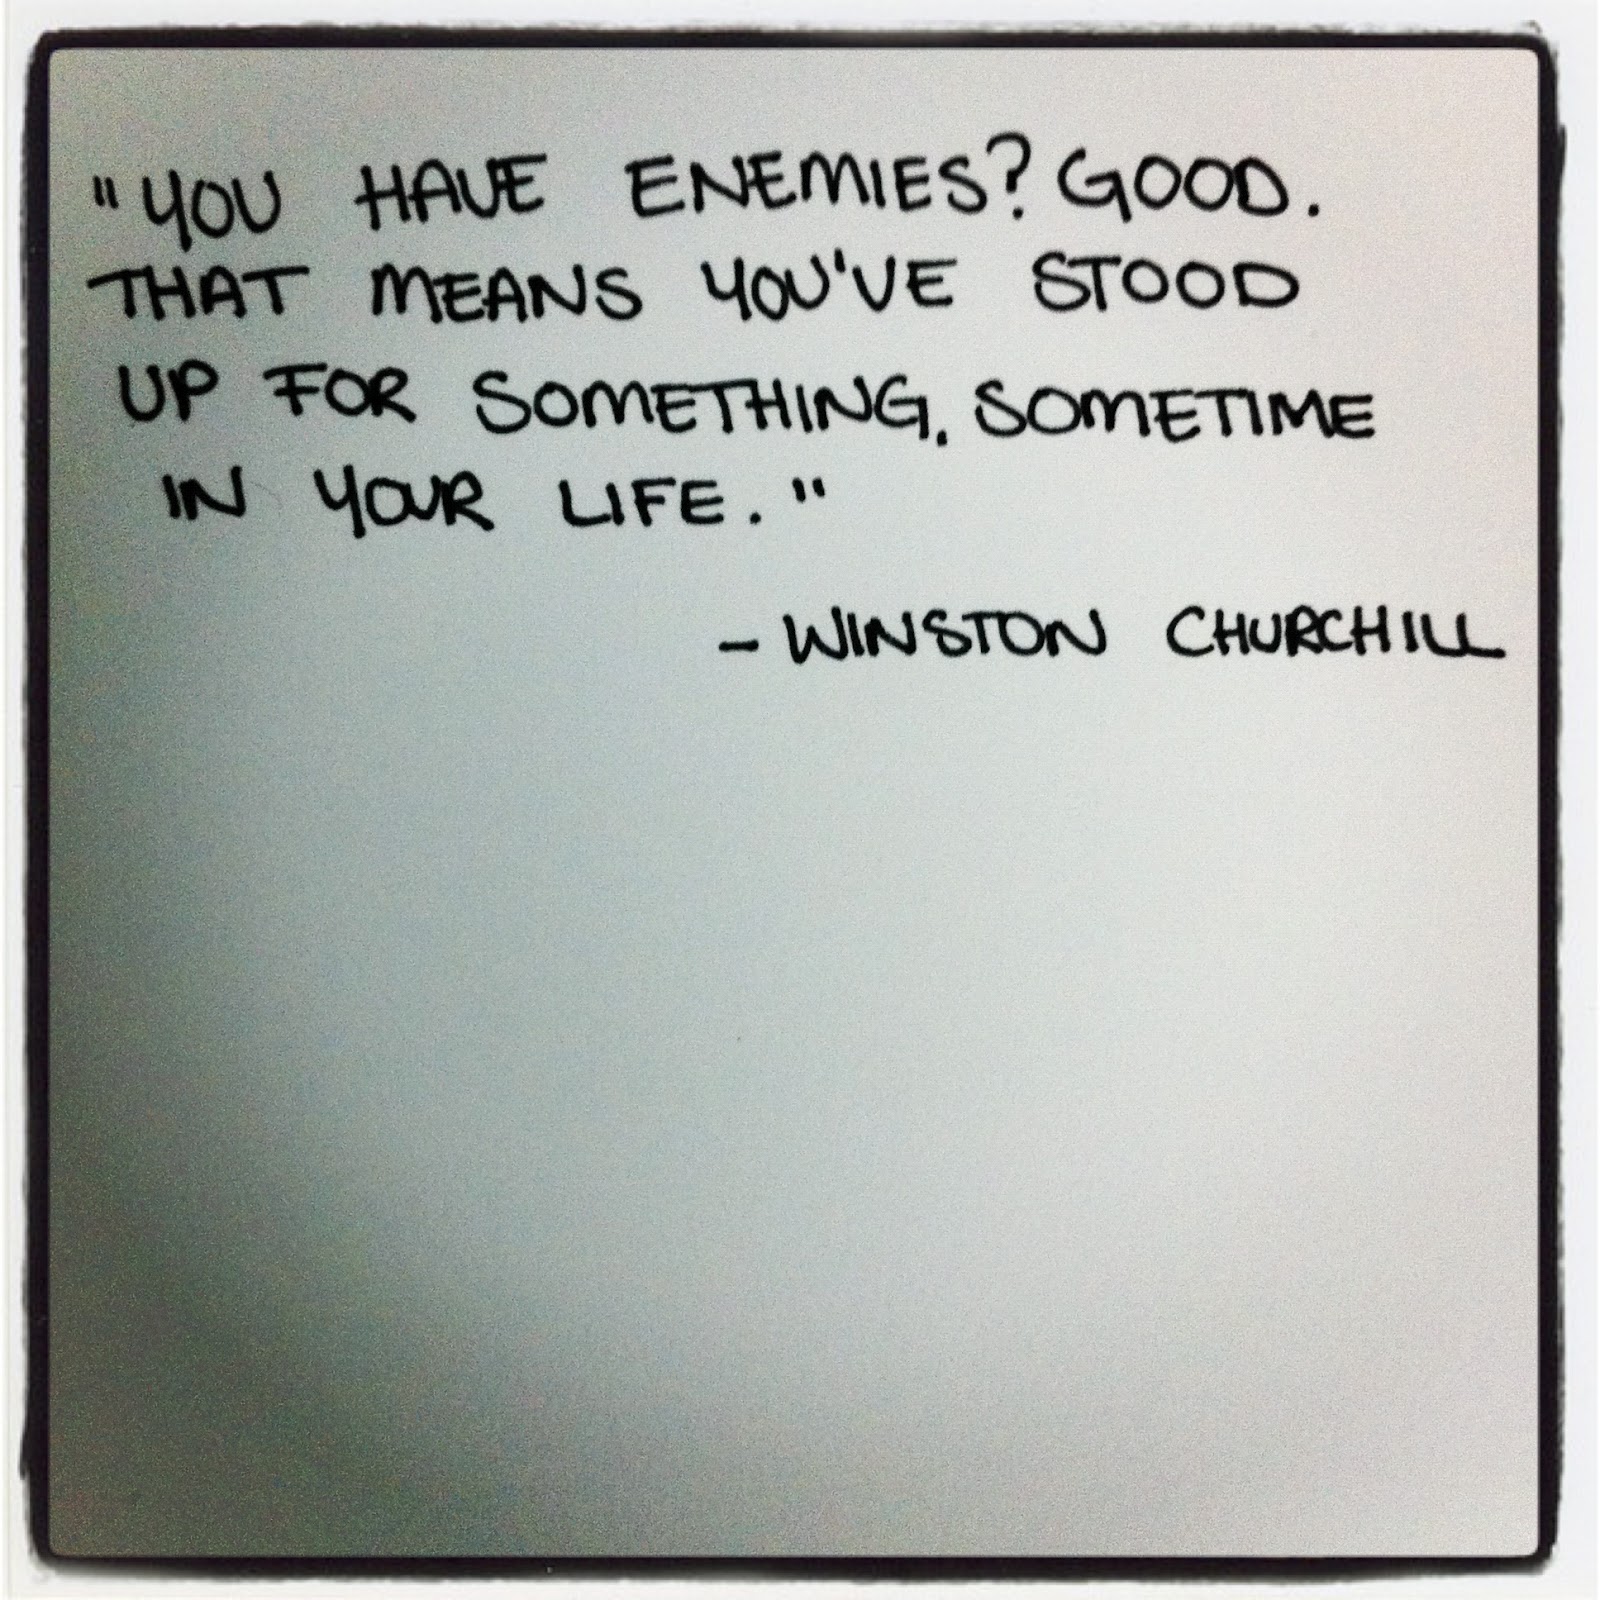 "YOU HAVE ENEMIES? GOOD.
THAT MEANS YOU'VE STOOD
UP FOR SOMETHING, SOMETIME
IN YOUR LIFE."
- WINSTON CHURCHILL